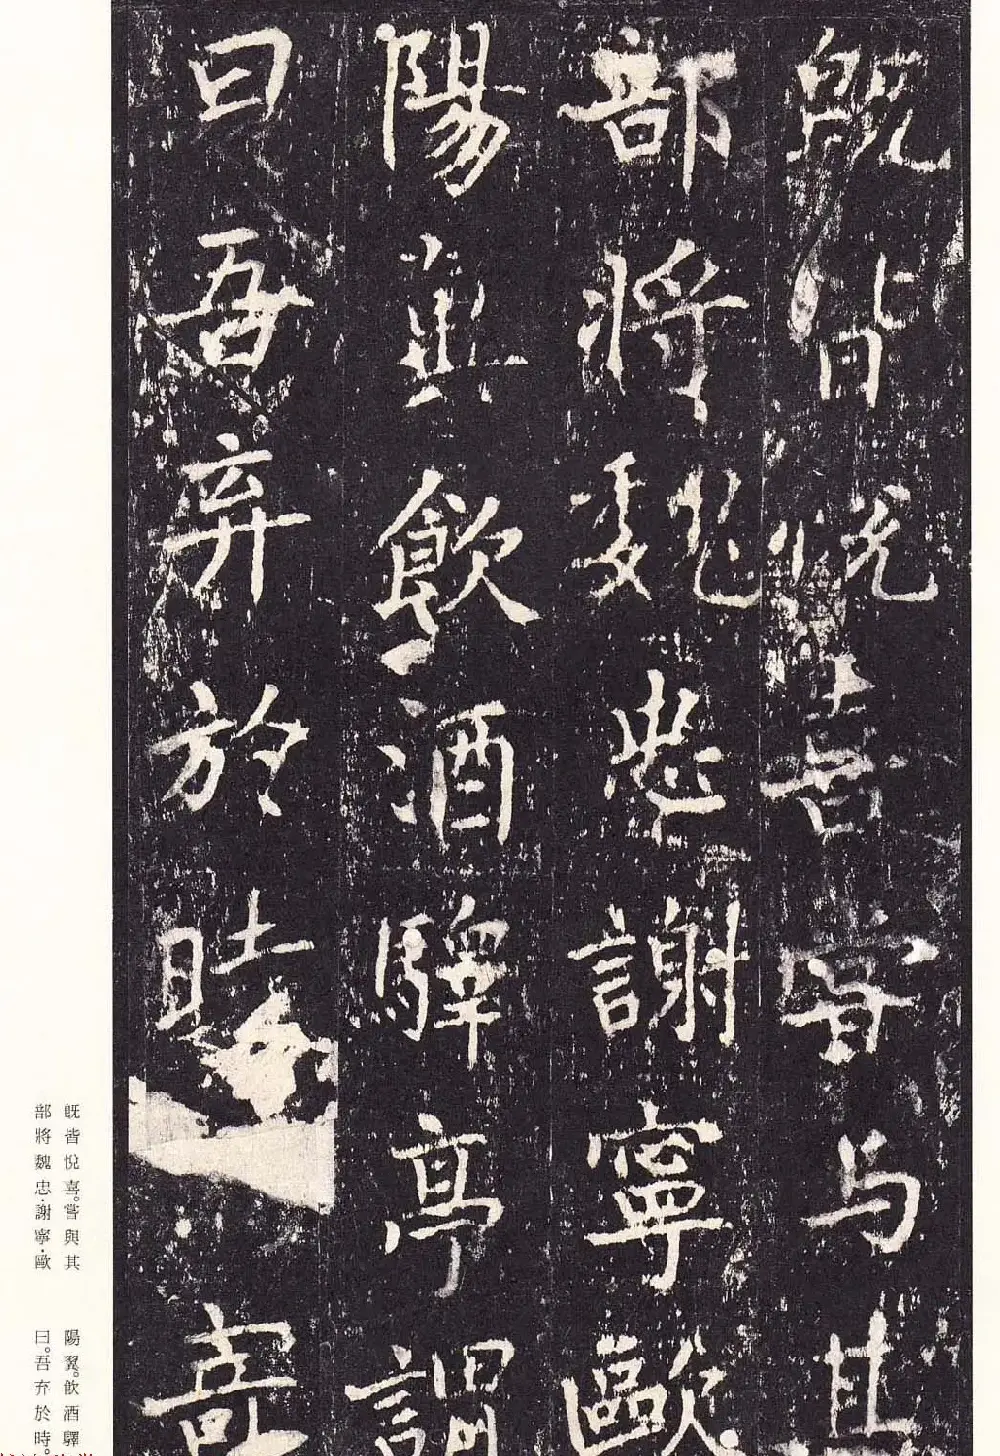 既皆悅喜甞与其
部將魏忠謝寧歐
陽翼飲酒驛亭謂
曰吾弃於時寄
既皆悅喜。嘗與其
部將魏忠·謝寧·歐
陽翼。飲酒驛
曰。吾弃於時。